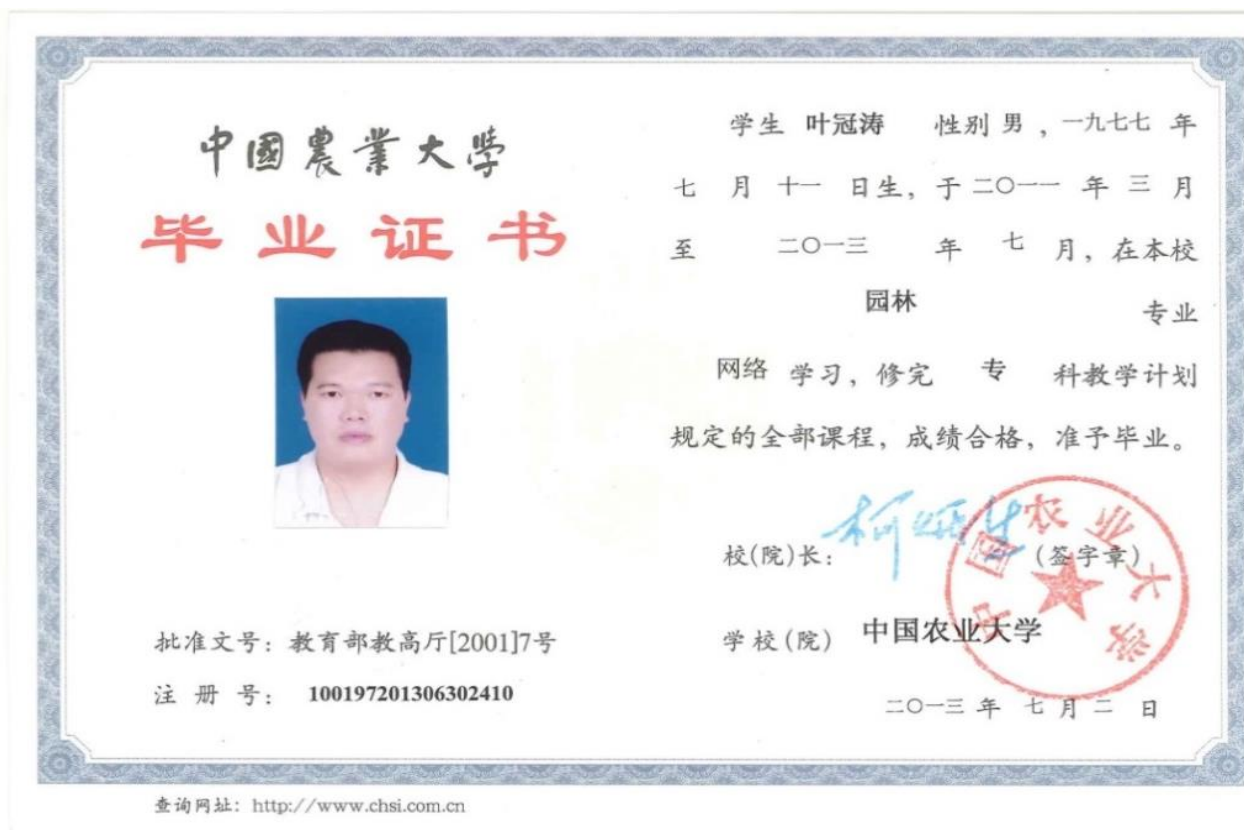 中國農業大學
毕业证书
批准文号：教育部教高厅[2001]7号
注 册 号： 100197201306302410
学生 叶冠涛 性别 男 ，一九七七 年
七 月 十一 日生，于 二〇一一 年 三 月
至 二〇一三 年 七 月，在本校
园林 专业
网络 学习，修完 专 科教学计划
规定的全部课程，成绩合格，准予毕业。
校(院)长： 柯炳生 (签字章)
学校(院) 中国农业大学
中国农业大学
二〇一三 年 七 月 二 日
查询网址：http://www.chsi.com.cn